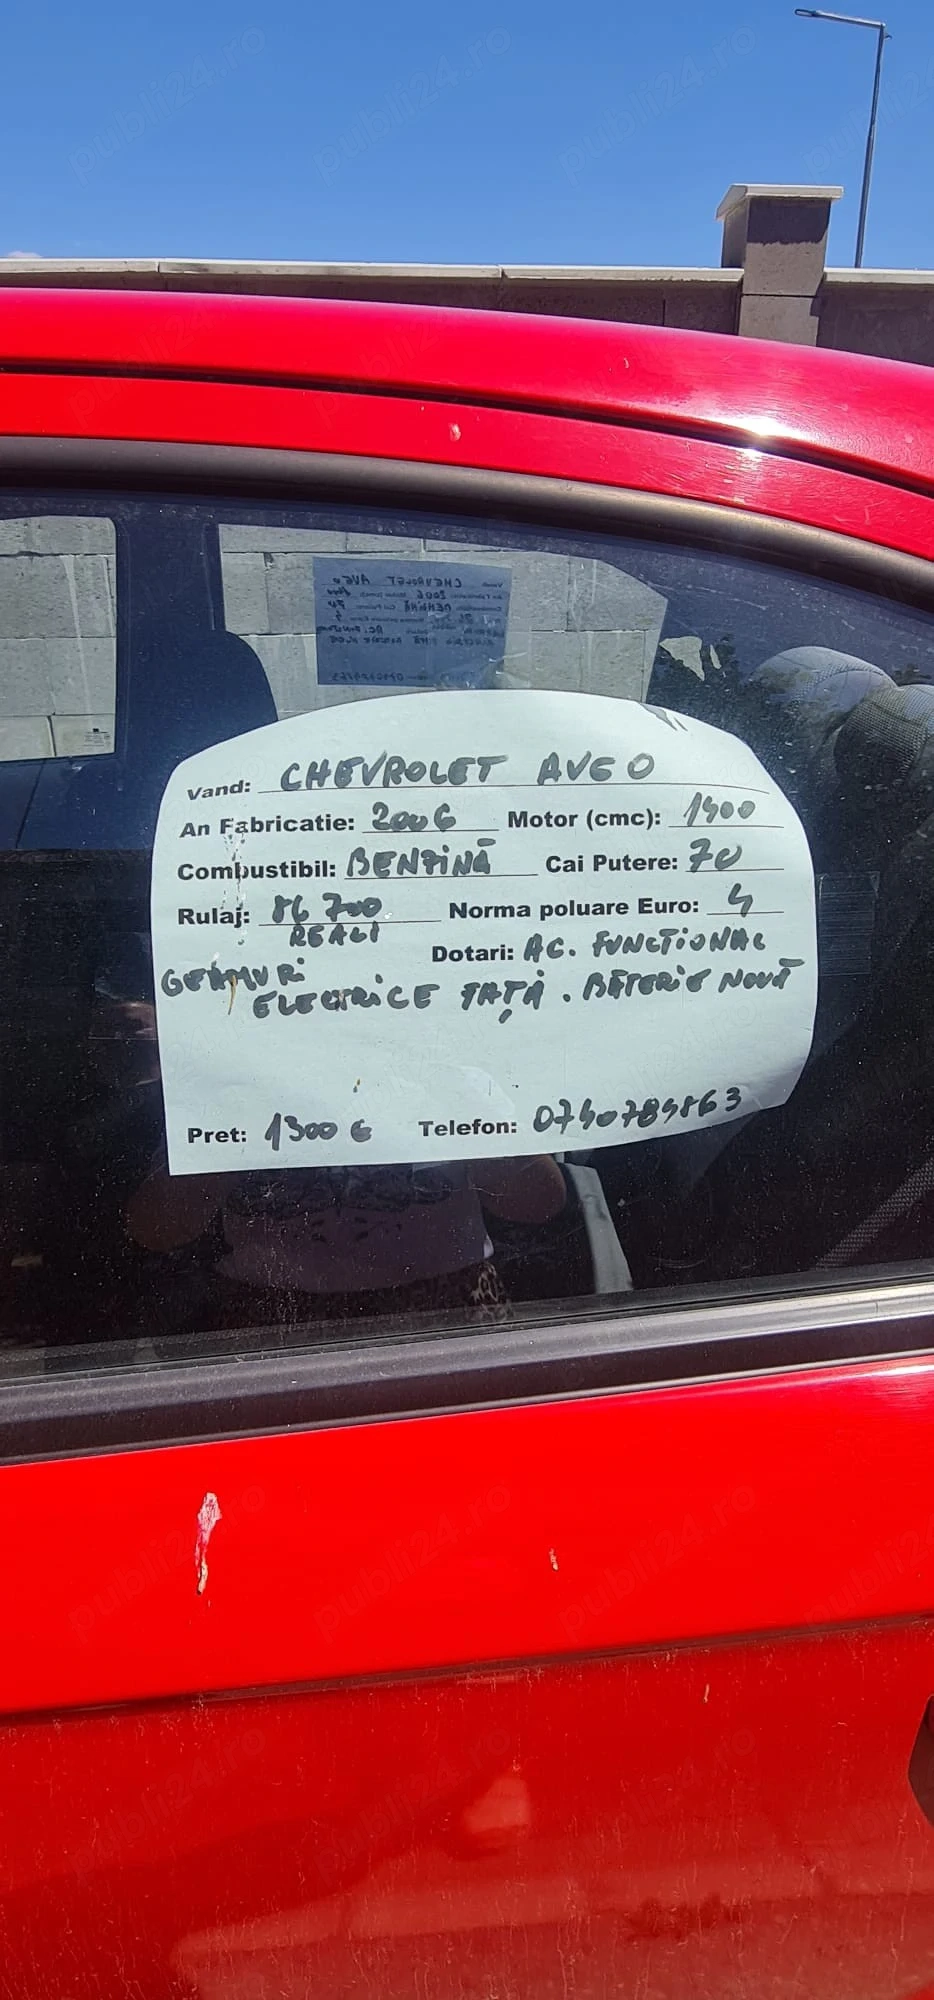 Vand: CHEVROLET AVEO
An Fabricatie: 2006 Motor (cmc): 1400
Combustibil: BENZINĂ Cai Putere: 70
Rulaj: 86 700 Norma poluare Euro: 4
REALI
Dotari: AC. FUNCTIONAL
GEAMURI
ELECTRICE FAȚĂ. BATERIE NOUĂ
Pret: 1300 € Telefon: 0740784863
publi24.ro